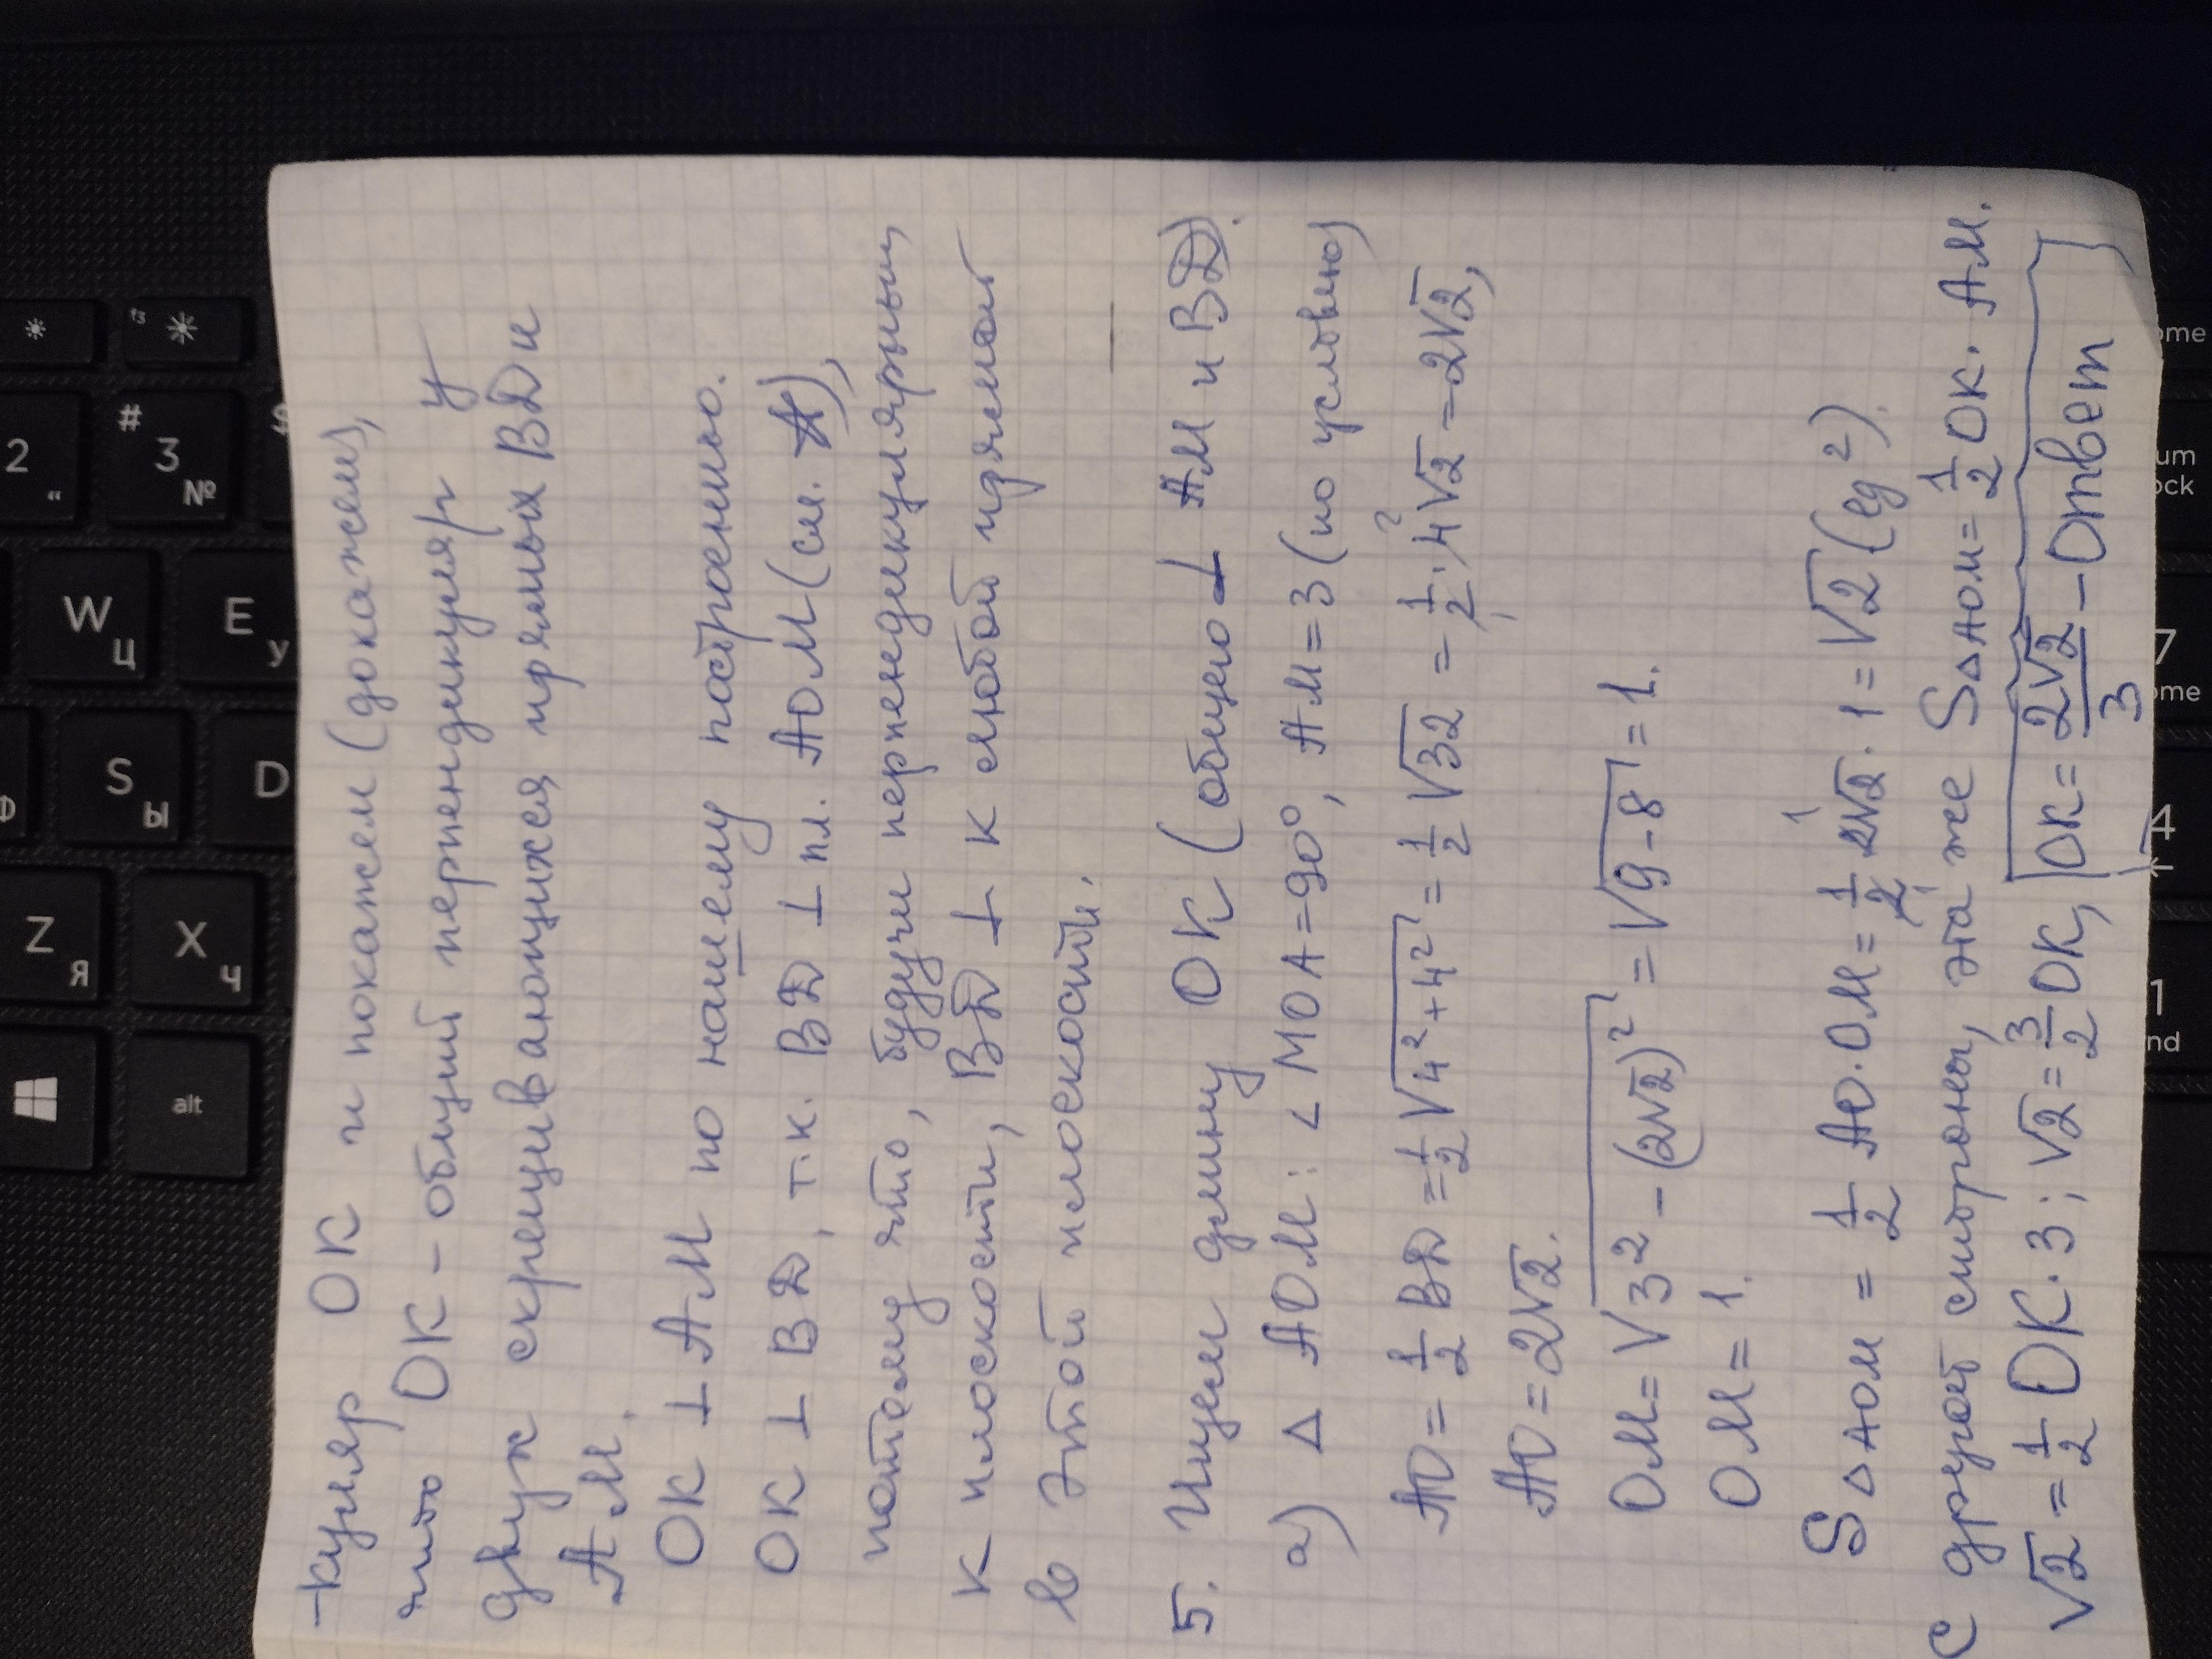 -куляр ОК и покажем (докажем),
что ОК - общий перпендикуляр у
двух скрещивающихся прямых ВД и
АМ.
ОК ⊥ АМ по нашему построению.
ОК ⊥ ВД, т.к. ВД ⊥ пл. АОМ (см.
потому что, будучи перпендикулярным
к плоскости, ВД ⊥ к любой прямой
в этой плоскости.
5. Ищем длину ОК (общего ⊥ АМ и ВД).
а) Δ АОМ: ∠ МОА = 90°, АМ = 3 (по условию)
АО = 1/2 ВД = 1/2 √(4² + 4²) = 1/2 √32 = 1/2 · 4√2 = 2√2,
АО = 2√2.
ОМ = √(3² - (2√2)²) = √(9 - 8) = 1.
ОМ = 1.
S Δ АОМ = 1/2 АО · ОМ = 1/2 2√2 · 1 = √2 (ед²).
С другой стороны, эта же S Δ АОМ = 1/2 ОК · АМ.
√2 = 1/2 ОК · 3; √2 = 3/2 ОК, ОК = 2√2/3 - Ответ
*
f3
*
2
"
#
3
№
W
Ц
E
У
S
Ы
D
Z
Я
X
Ч
alt
7
4
←
1